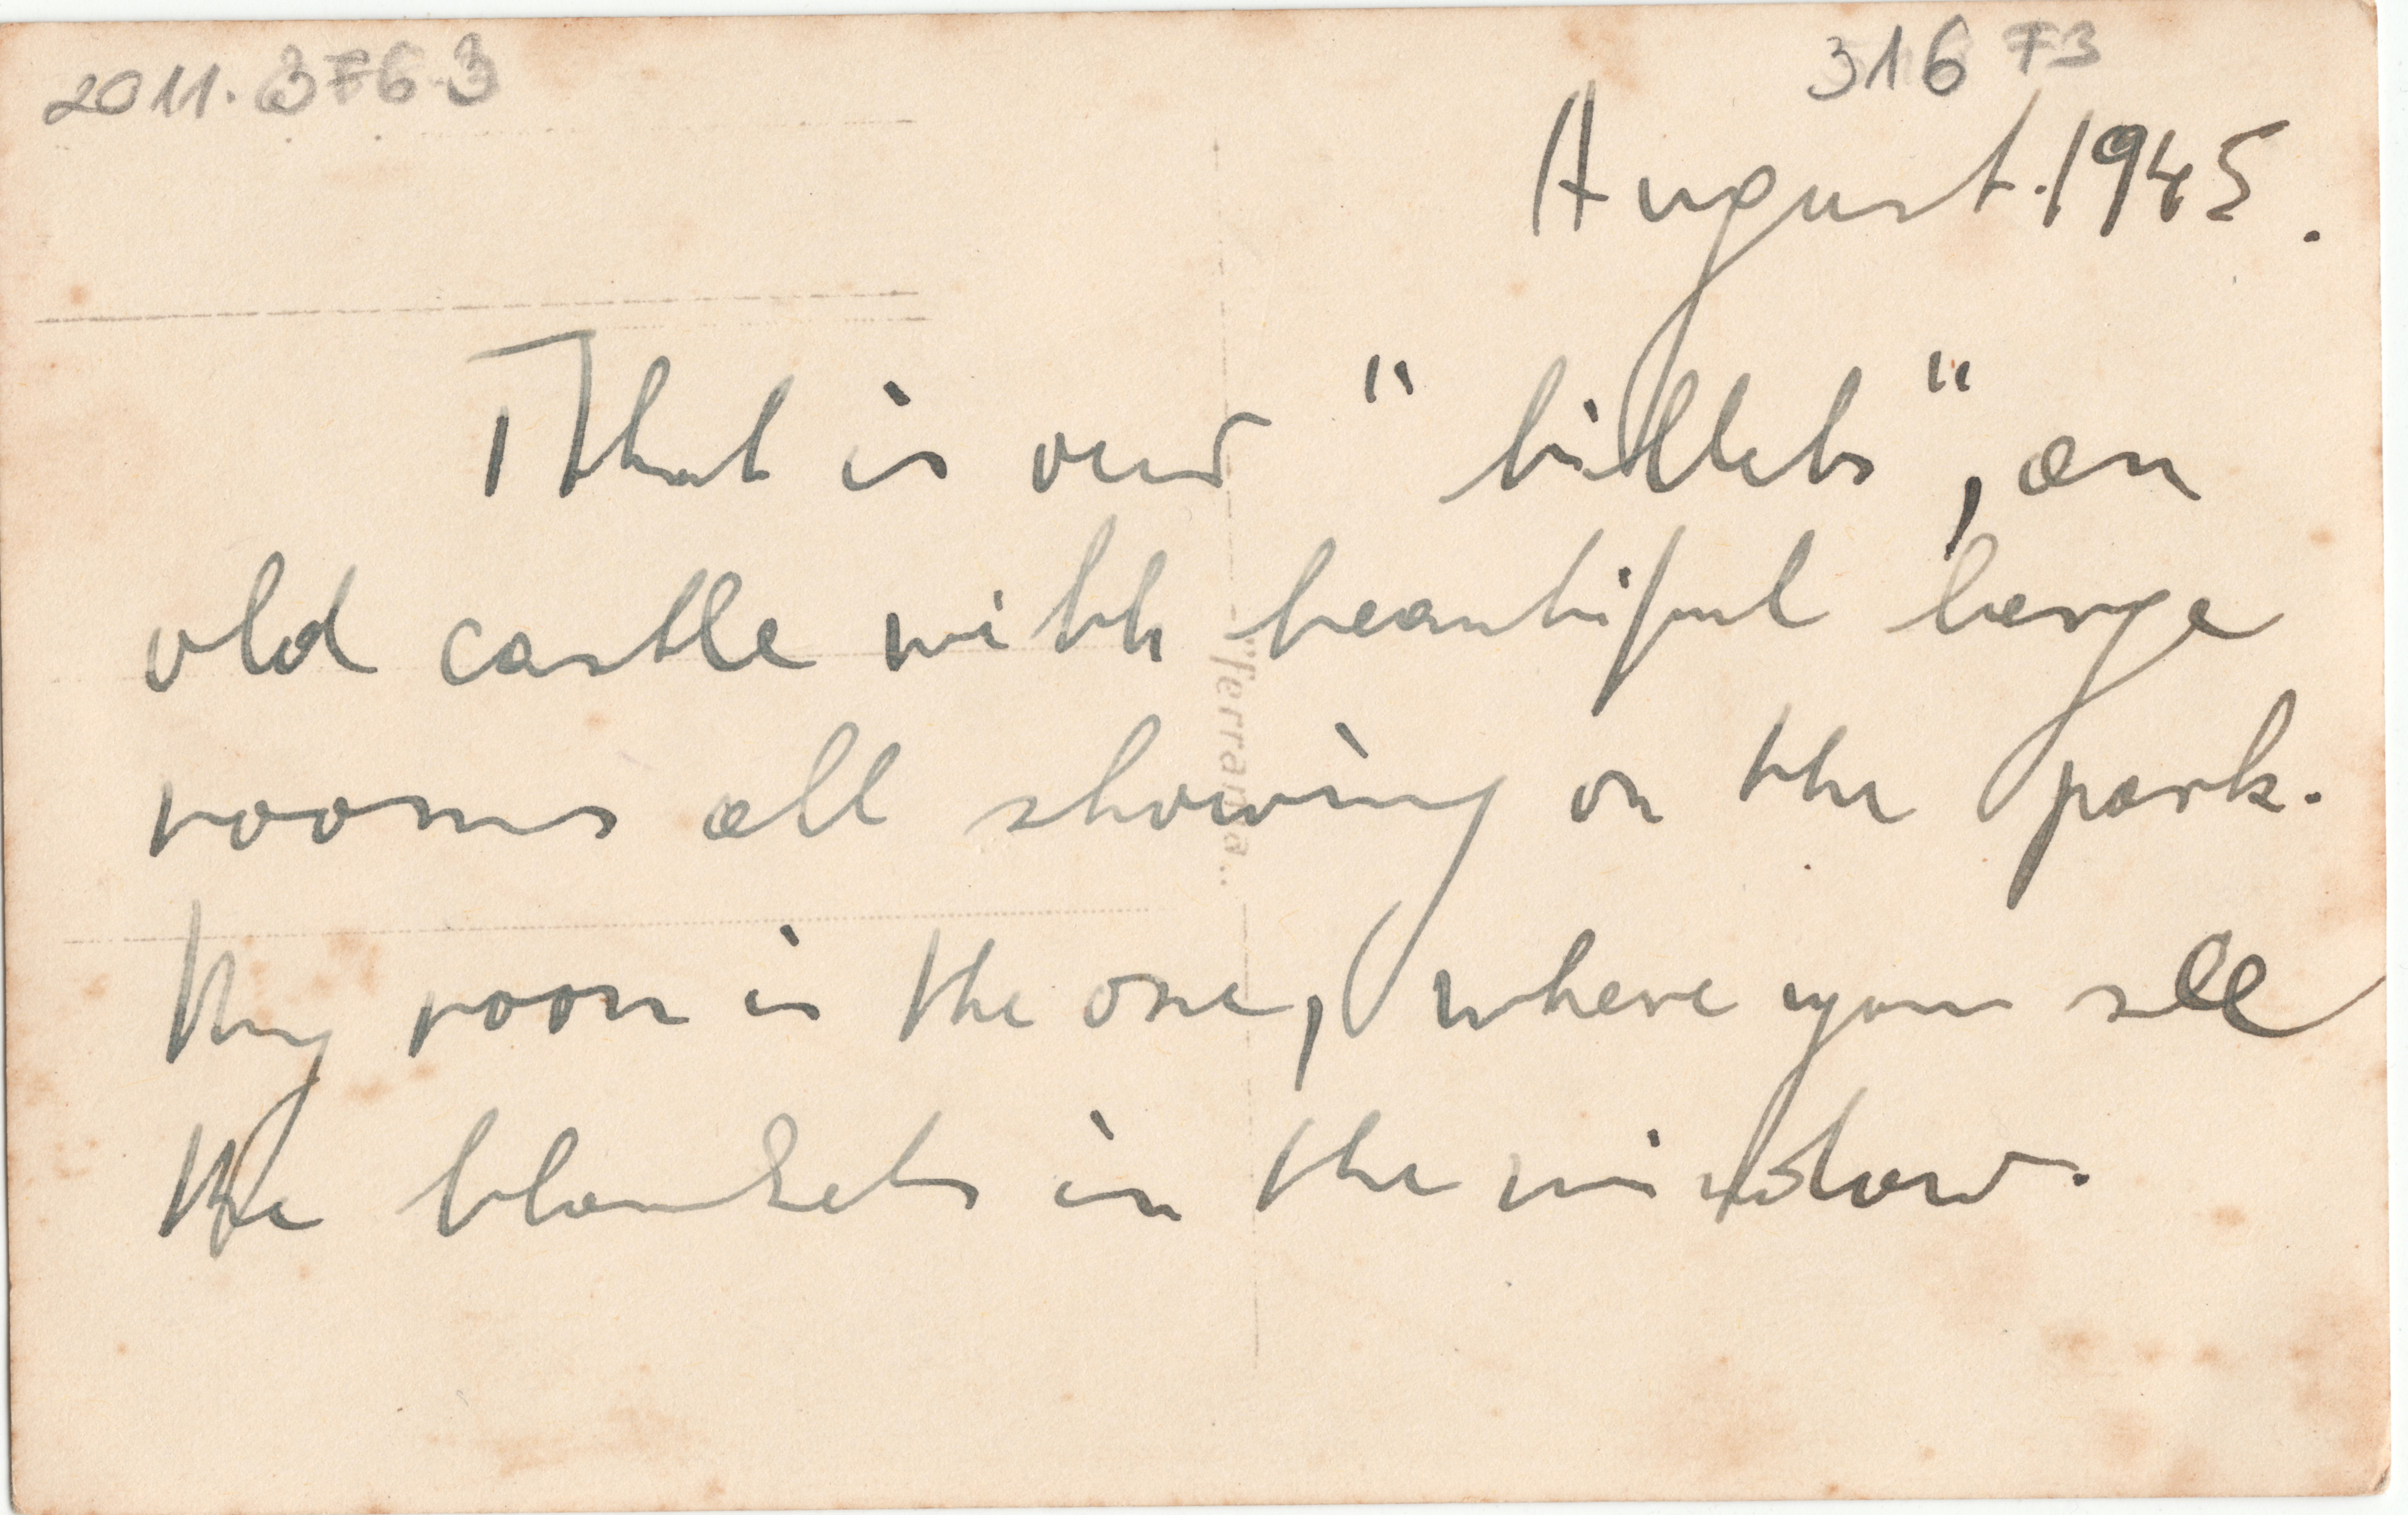 2011.376.3
316 T3
August.1945.
That is our "billets", an
old castle with beautiful large
rooms all showing on the park.
My room is the one, where you see
the blankets in the window.
"Terranova"